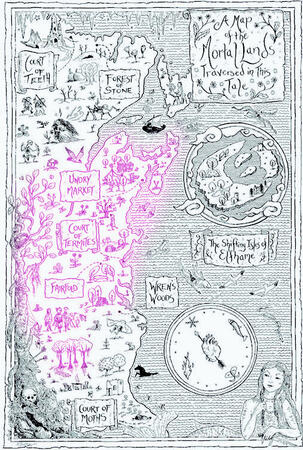 A Map
of the
Mortal Lands
Traversed in This
Tale
Court
of
Teeth
Forest
of
Stone
Undry
Market
Court
of
Termites
The Shifting Isles of
Elfhame
Fairfold
Wren's
Woods
Court of
Moths